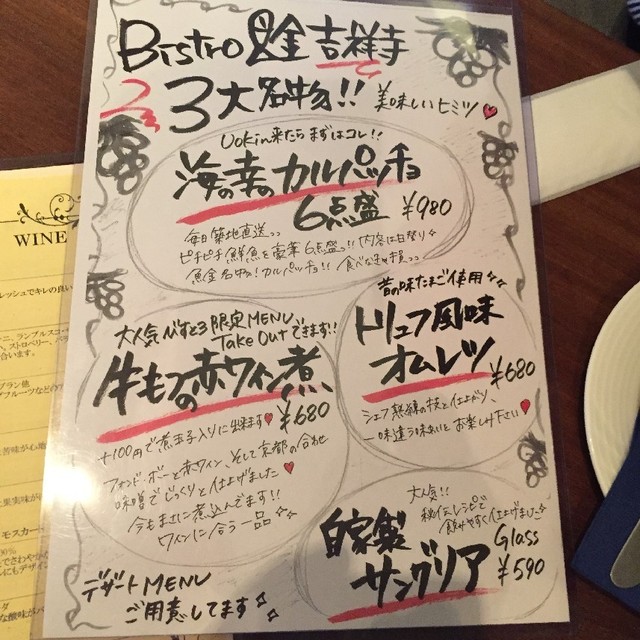 Bistro 魚金 吉祥寺
3大名物!! 美味しいヒミツ
Uokin来たらまずはコレ!!
海の幸のカルパッチョ
6点盛 ¥980
毎日築地直送
ピチピチ鮮魚を豪華6点盛っ!! 内容は日替り
魚金名物!カルパッチョ!! 食べなきゃ損っっ
大人気 びすとろ限定MENU
Take Outできます!!
牛もつの赤ワイン煮
¥680
+100円で煮玉子入りに出来ます
フォンドボーと赤ワイン、そして京都の合わせ
味噌でじっくりと仕上げました
今もまさに煮込んでます!!
ワインに合う一品
昔の味たまご使用
トリュフ風味
オムレツ
¥680
シェフ熟練の技と仕上がり、
一味違う味わいをお楽しみ下さい
大人気!!
秘伝レシピで
飲みやすく仕上げました
自家製
サングリア
Glass
¥590
デザートMENU
ご用意してます
WINE
レッシュでキレの良い